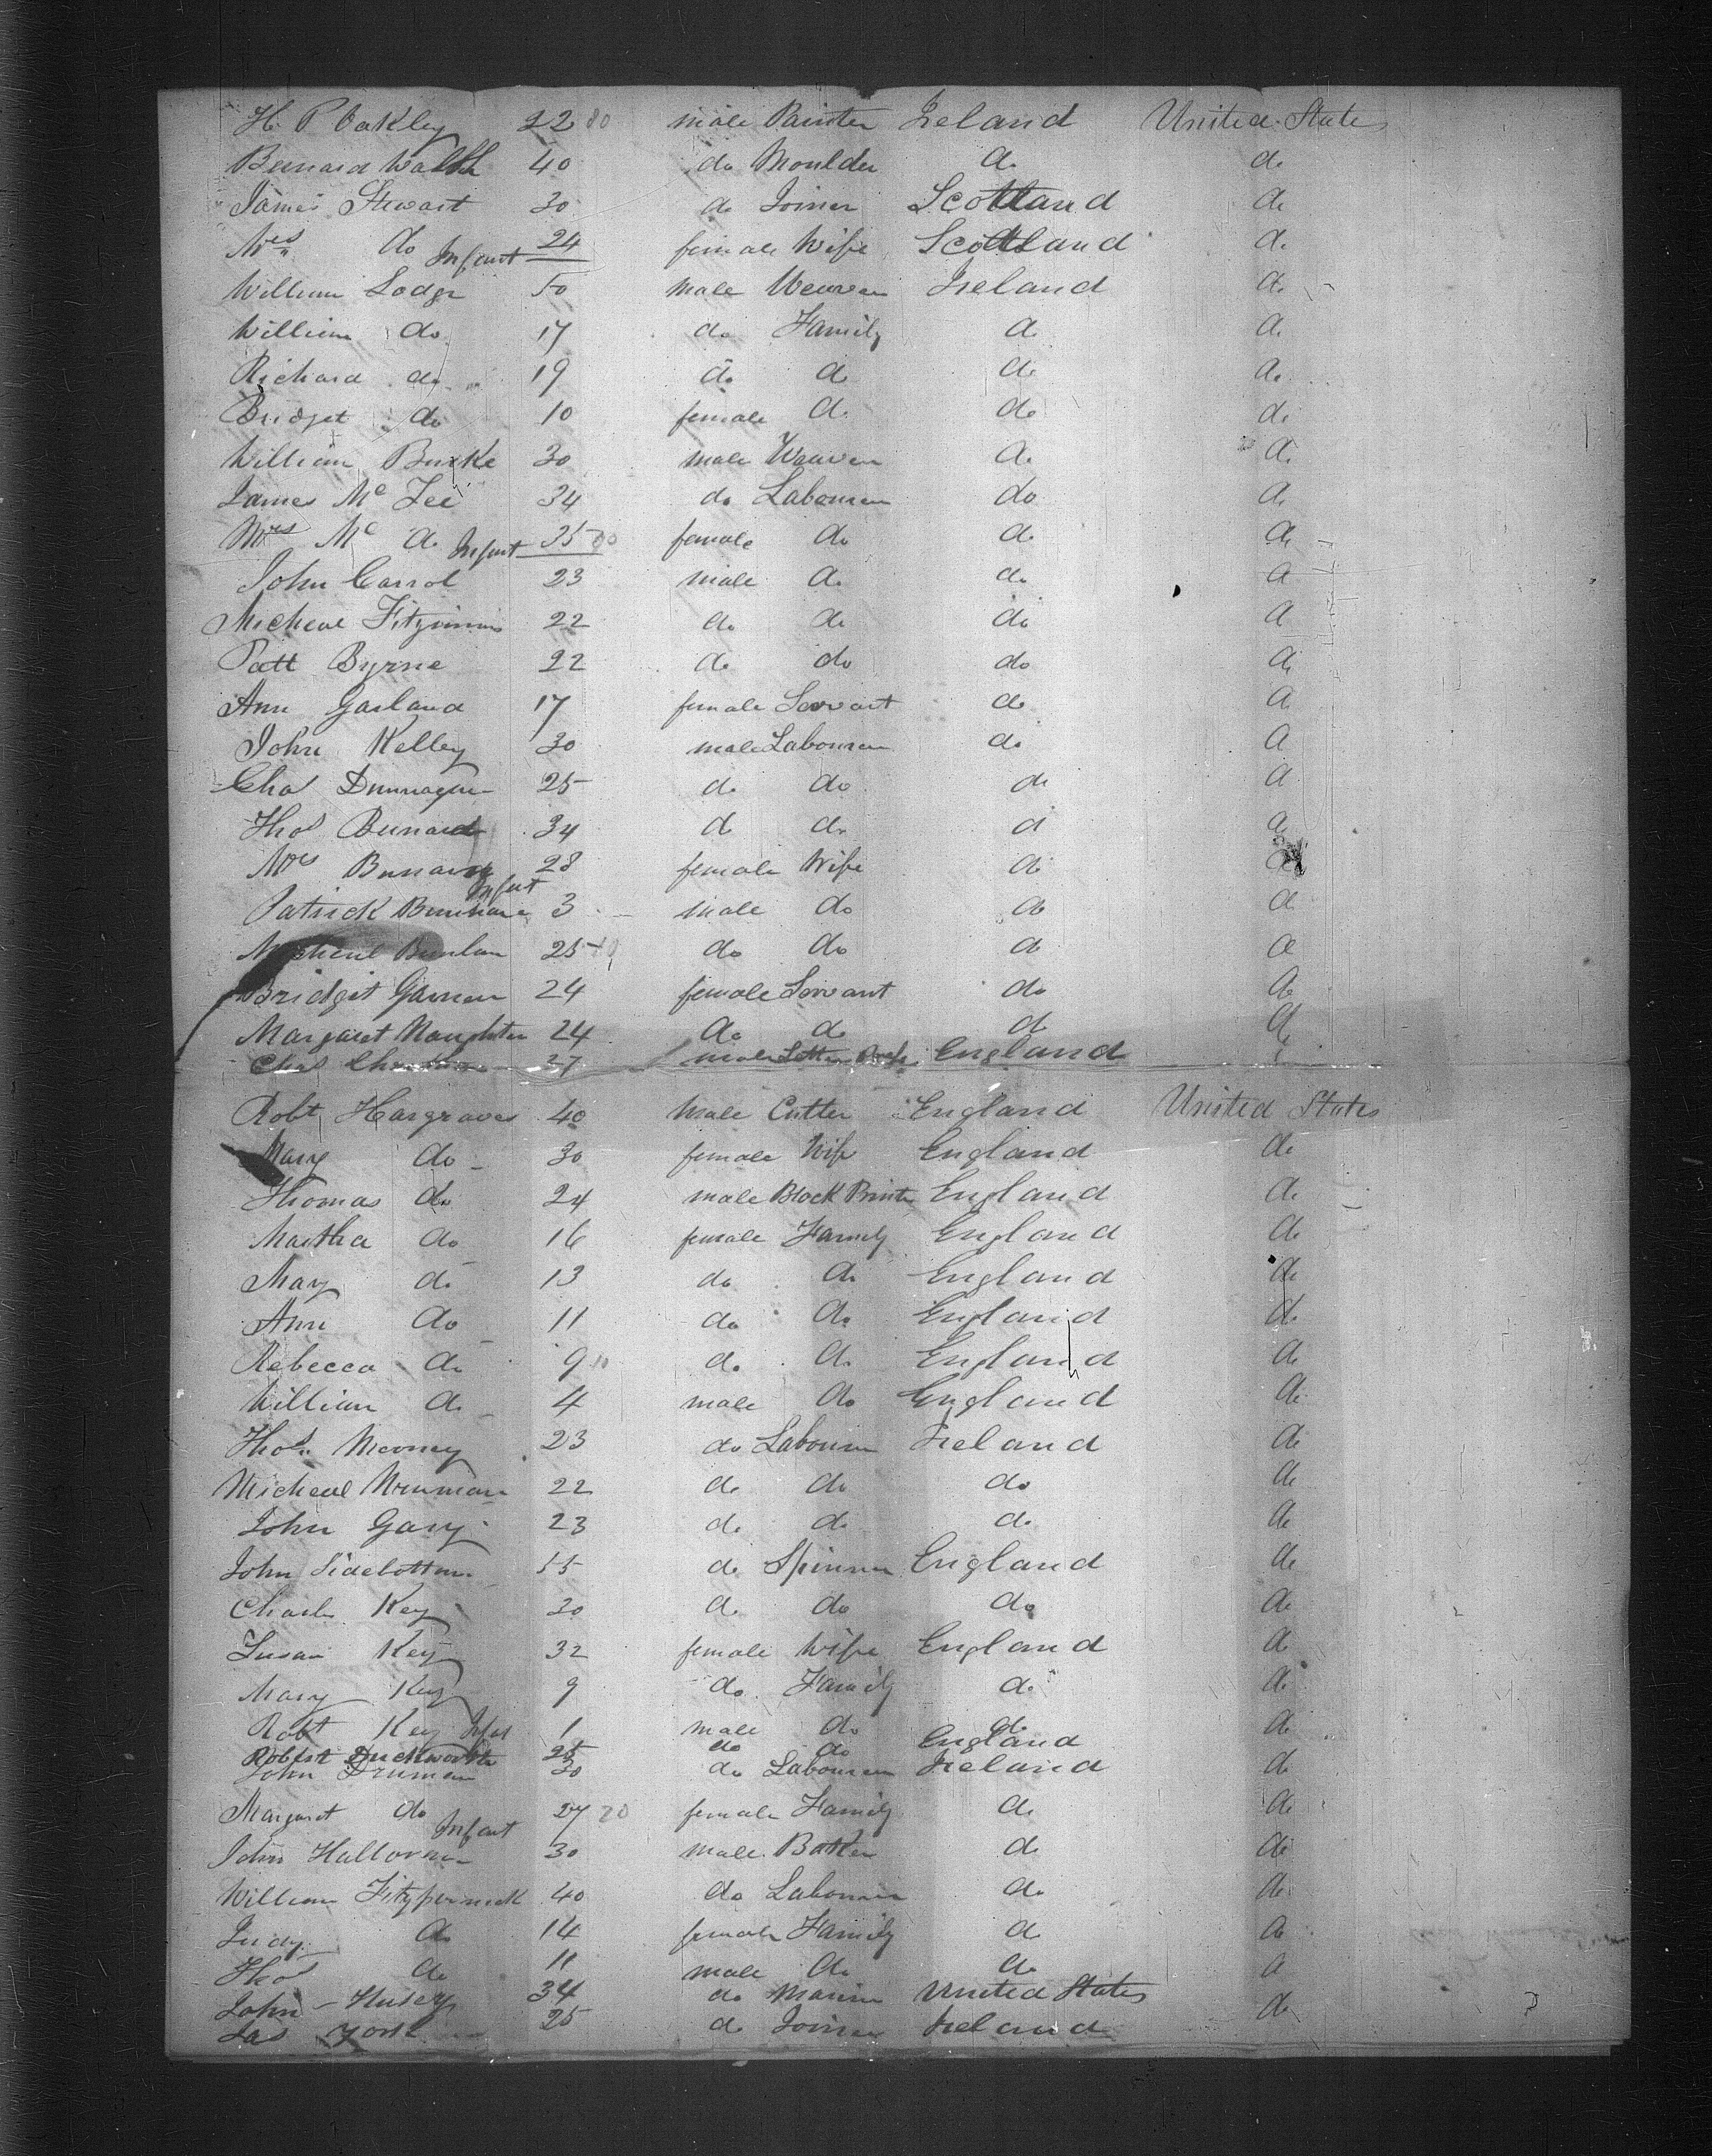 H. P Oakley 22 80 male Painter Ireland United States
Bernard Walsh 40 do Moulder do do
James Stewart 30 do Joiner Scotland do
Mrs do Infant 24 female Wife Scotland do
William Lodge 50 male Weaver Ireland do
William do 17 do Family do do
Richard do 19 do do do do
Bridget do 10 female do do do
William Burke 30 male Weaver do do
James Mc Fee 34 do Labourer do do
Mrs Mc do Infant 35 80 female do do do
John Carrol 23 male do do do
Micheal 22 do do do do
Patt Byrne 22 do do do do
Ann Garland 17 female Servant do do
John Kelley 30 male Labourer do do
Chas 25 do do do do
Thos 34 do do do do
Mrs 28 female Wife do do
Infant
Patrick 3 male do do do
Micheal 25 do do do do
Bridget 24 female Servant do do
Margaret Naughten 24 do do do do
Chas 37 male Letter England
Robt Hargraves 40 Male Cutter England United States
Mary do 30 female Wife England do
Thomas do 24 male Block Printer England do
Martha do 16 female Family England do
Mary do 13 do do England do
Ann do 11 do do England do
Rebecca do 9 do do England do
William do 4 male do England do
Thos Mooney 23 do Labourer Ireland do
Micheal 22 do do do do
John Gary 23 do do do do
John Sidebottom 55 do Spinner England do
Charles Key 30 do do do do
Susan Key 32 female Wife England do
Mary Key 9 do Family do do
Robt Key Infant 1 male do do do
Robert Duckworth 25 do do England
John 30 do Labourer Ireland do
Margaret do Infant 27 80 female Family do do
John Halloran 30 male Baker do do
William 40 do Labourer do do
Judy do 14 female Family do do
Thos do 11 male do do do
John Husey 34 do Marine United States
Jas York 25 do Joiner Ireland do